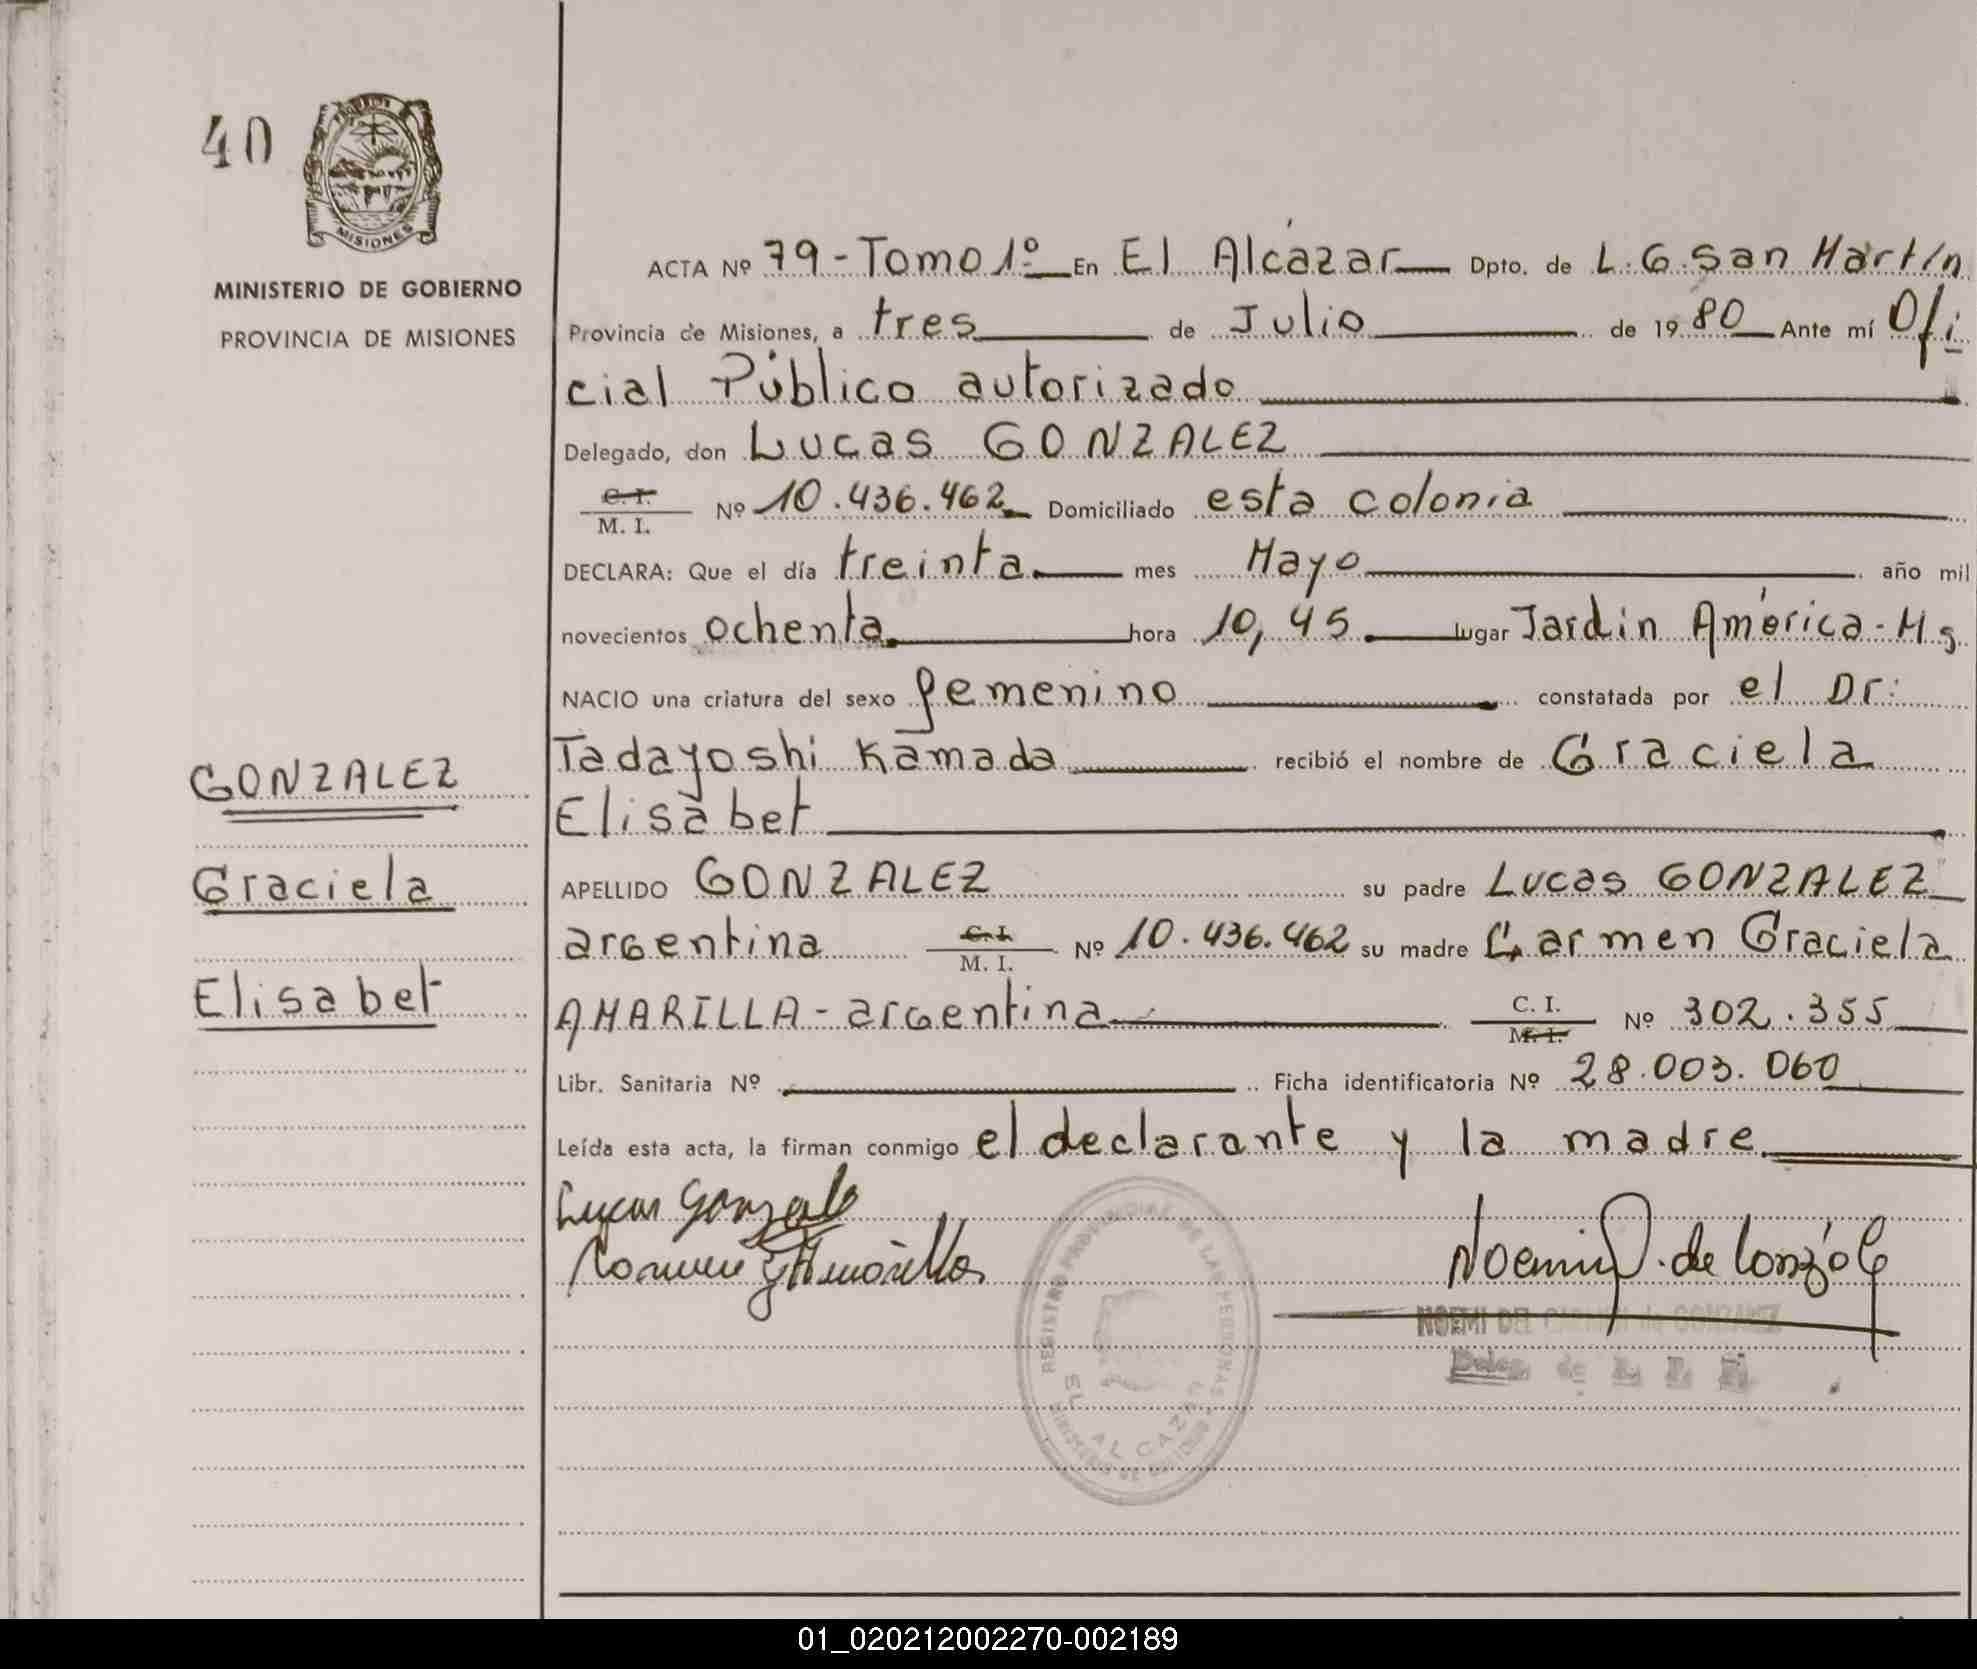 40
MISIONES
MINISTERIO DE GOBIERNO
PROVINCIA DE MISIONES
GONZALEZ
Graciela
Elisabet
ACTA Nº 79 - Tomo 1º En El Alcázar Dpto. de L. G. San Martín
Provincia de Misiones, a tres de Julio de 1980 Ante mí Ofi
cial Público autorizado
Delegado, don Lucas GONZALEZ
C. I.
M. I. Nº 10.436.462 Domiciliado esta colonia
DECLARA: Que el día treinta mes Mayo año mil
novecientos ochenta hora 10,45 lugar Jardín América - Ms.
NACIO una criatura del sexo femenino constatada por el Dr:
Tadayoshi Kamada recibió el nombre de Graciela
Elisabet
APELLIDO GONZALEZ su padre Lucas GONZALEZ
argentina C. I. M. I. Nº 10.436.462 su madre Carmen Graciela
AMARILLA - argentina C. I. M. I. Nº 302.355
Libr. Sanitaria Nº Ficha identificatoria Nº 28.003.060
Leída esta acta, la firman conmigo el declarante y la madre
Lucas Gonzalez
Carmen G Amarilla
Noemi D. de González
NOEMI DEL CARMEN de GONZALEZ
REGISTRO PROVINCIAL DE LAS PERSONAS
EL ALCAZAR
MINISTERIO DE GOBIERNO
01_020212002270-002189